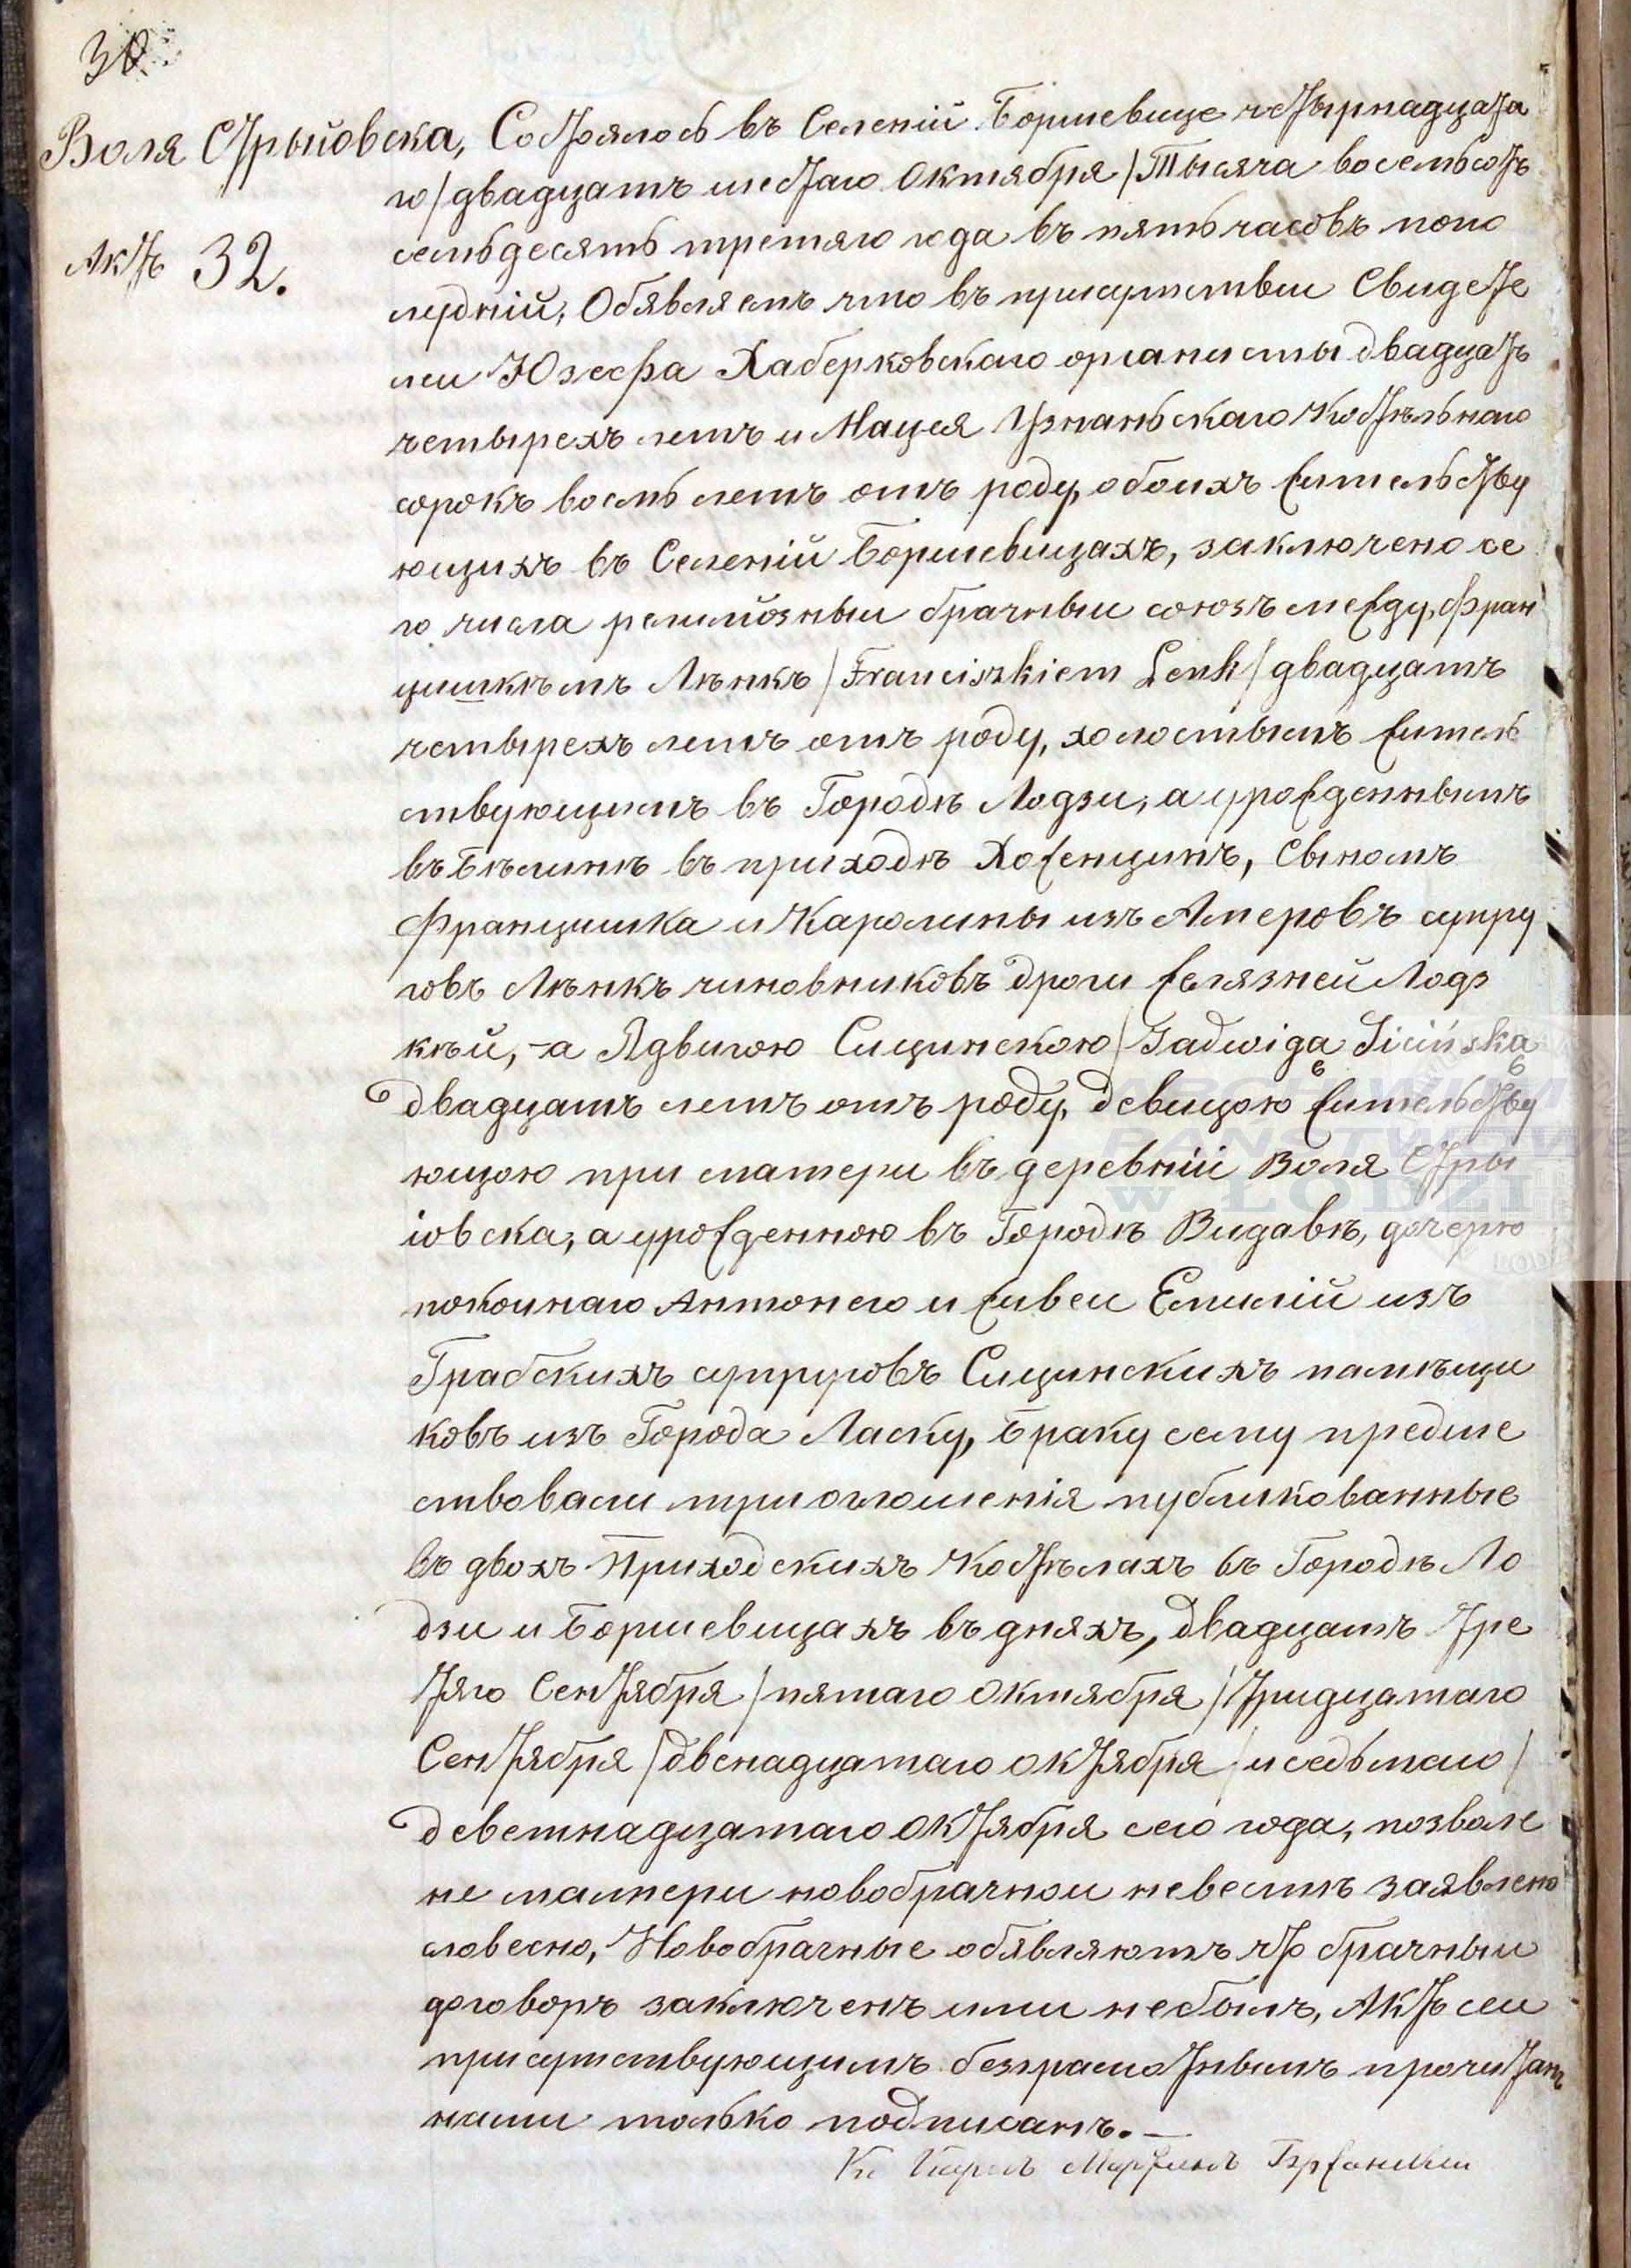 30
Воля Стрыйовска, Состоялось въ Селеній Боршевице четырнадцата
го/двадцатъ шестаго Октября/Тысяча восемьсотъ
Актъ 32.
семьдесять третяго года въ пять часовъ попо
лудній, Обявляемъ что въ присутствии Свидете
леи Юзефа Хаберковскаго органисты двадцать
четырехъ летъ и Мацея Узнаньскаго Костѣльнаго
сорокъ восмь летъ отъ роду, обоихъ жительству
ющихъ въ Селеній Боршевицахъ, заключено се
го числа религіозныи брачныи союзъ между, Фран
цишкѣмъ Лѣнкъ/Franciszkiem Lenk/двадцатъ
четырехъ летъ отъ роду, холостымъ житель
ствующимъ въ Городѣ Лодзи, а урожденнымъ
въ Бѣлинѣ въ приходѣ Хоженцинѣ, Сыномъ
Францишка и Каролины изъ Амеровъ супру
говъ Лѣнкъ чиновниковъ дроги желязней Лодз
кѣй, -а Ядвигою Сицинскою/Jadwiga Sicińska
двадцатъ летъ отъ роду, девицою жительству
ющою при матери въ деревній Воля Стры
іовска, а урожденною въ Городѣ Видавѣ, дочерю
покоинаго Антонего и живеи Емилій изъ
Грабскихъ супруговъ Сицинскихъ памѣщи
ковъ изъ Города Ласку, Браку сему предше
ствовали три оглошенія публикованные
въ двохъ Приходскихъ Костѣлахъ въ Городѣ Ло
дзи и Боршевицахъ въ дняхъ, двадцатъ тре
тяго Сентября/пятаго Октября/тридцатаго
Сентября/двенадцатаго Октября/и седьмаго/
деветнадцатаго Октября сего года, позволе
не матери новобрачнои невестѣ заявлено
словесно, Новобрачные обявляютъ что брачныи
договоръ заключенъ ими небылъ, Актъ сеи
присутствующимъ безграмотнымъ прочитанъ
нами только подписанъ. —
Кс Кароль
ARCHIWUM
PAŃSTWOWE
W ŁODZI